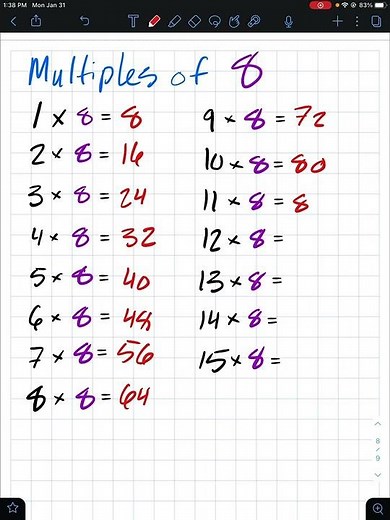 1:38 PM Mon Jan 31
83%
Multiples of 8
1 x 8 = 8
2 x 8 = 16
3 x 8 = 24
4 x 8 = 32
5 x 8 = 40
6 x 8 = 48
7 x 8 = 56
8 x 8 = 64
9 x 8 = 72
10 x 8 = 80
11 x 8 = 8
12 x 8 =
13 x 8 =
14 x 8 =
15 x 8 =
8
9